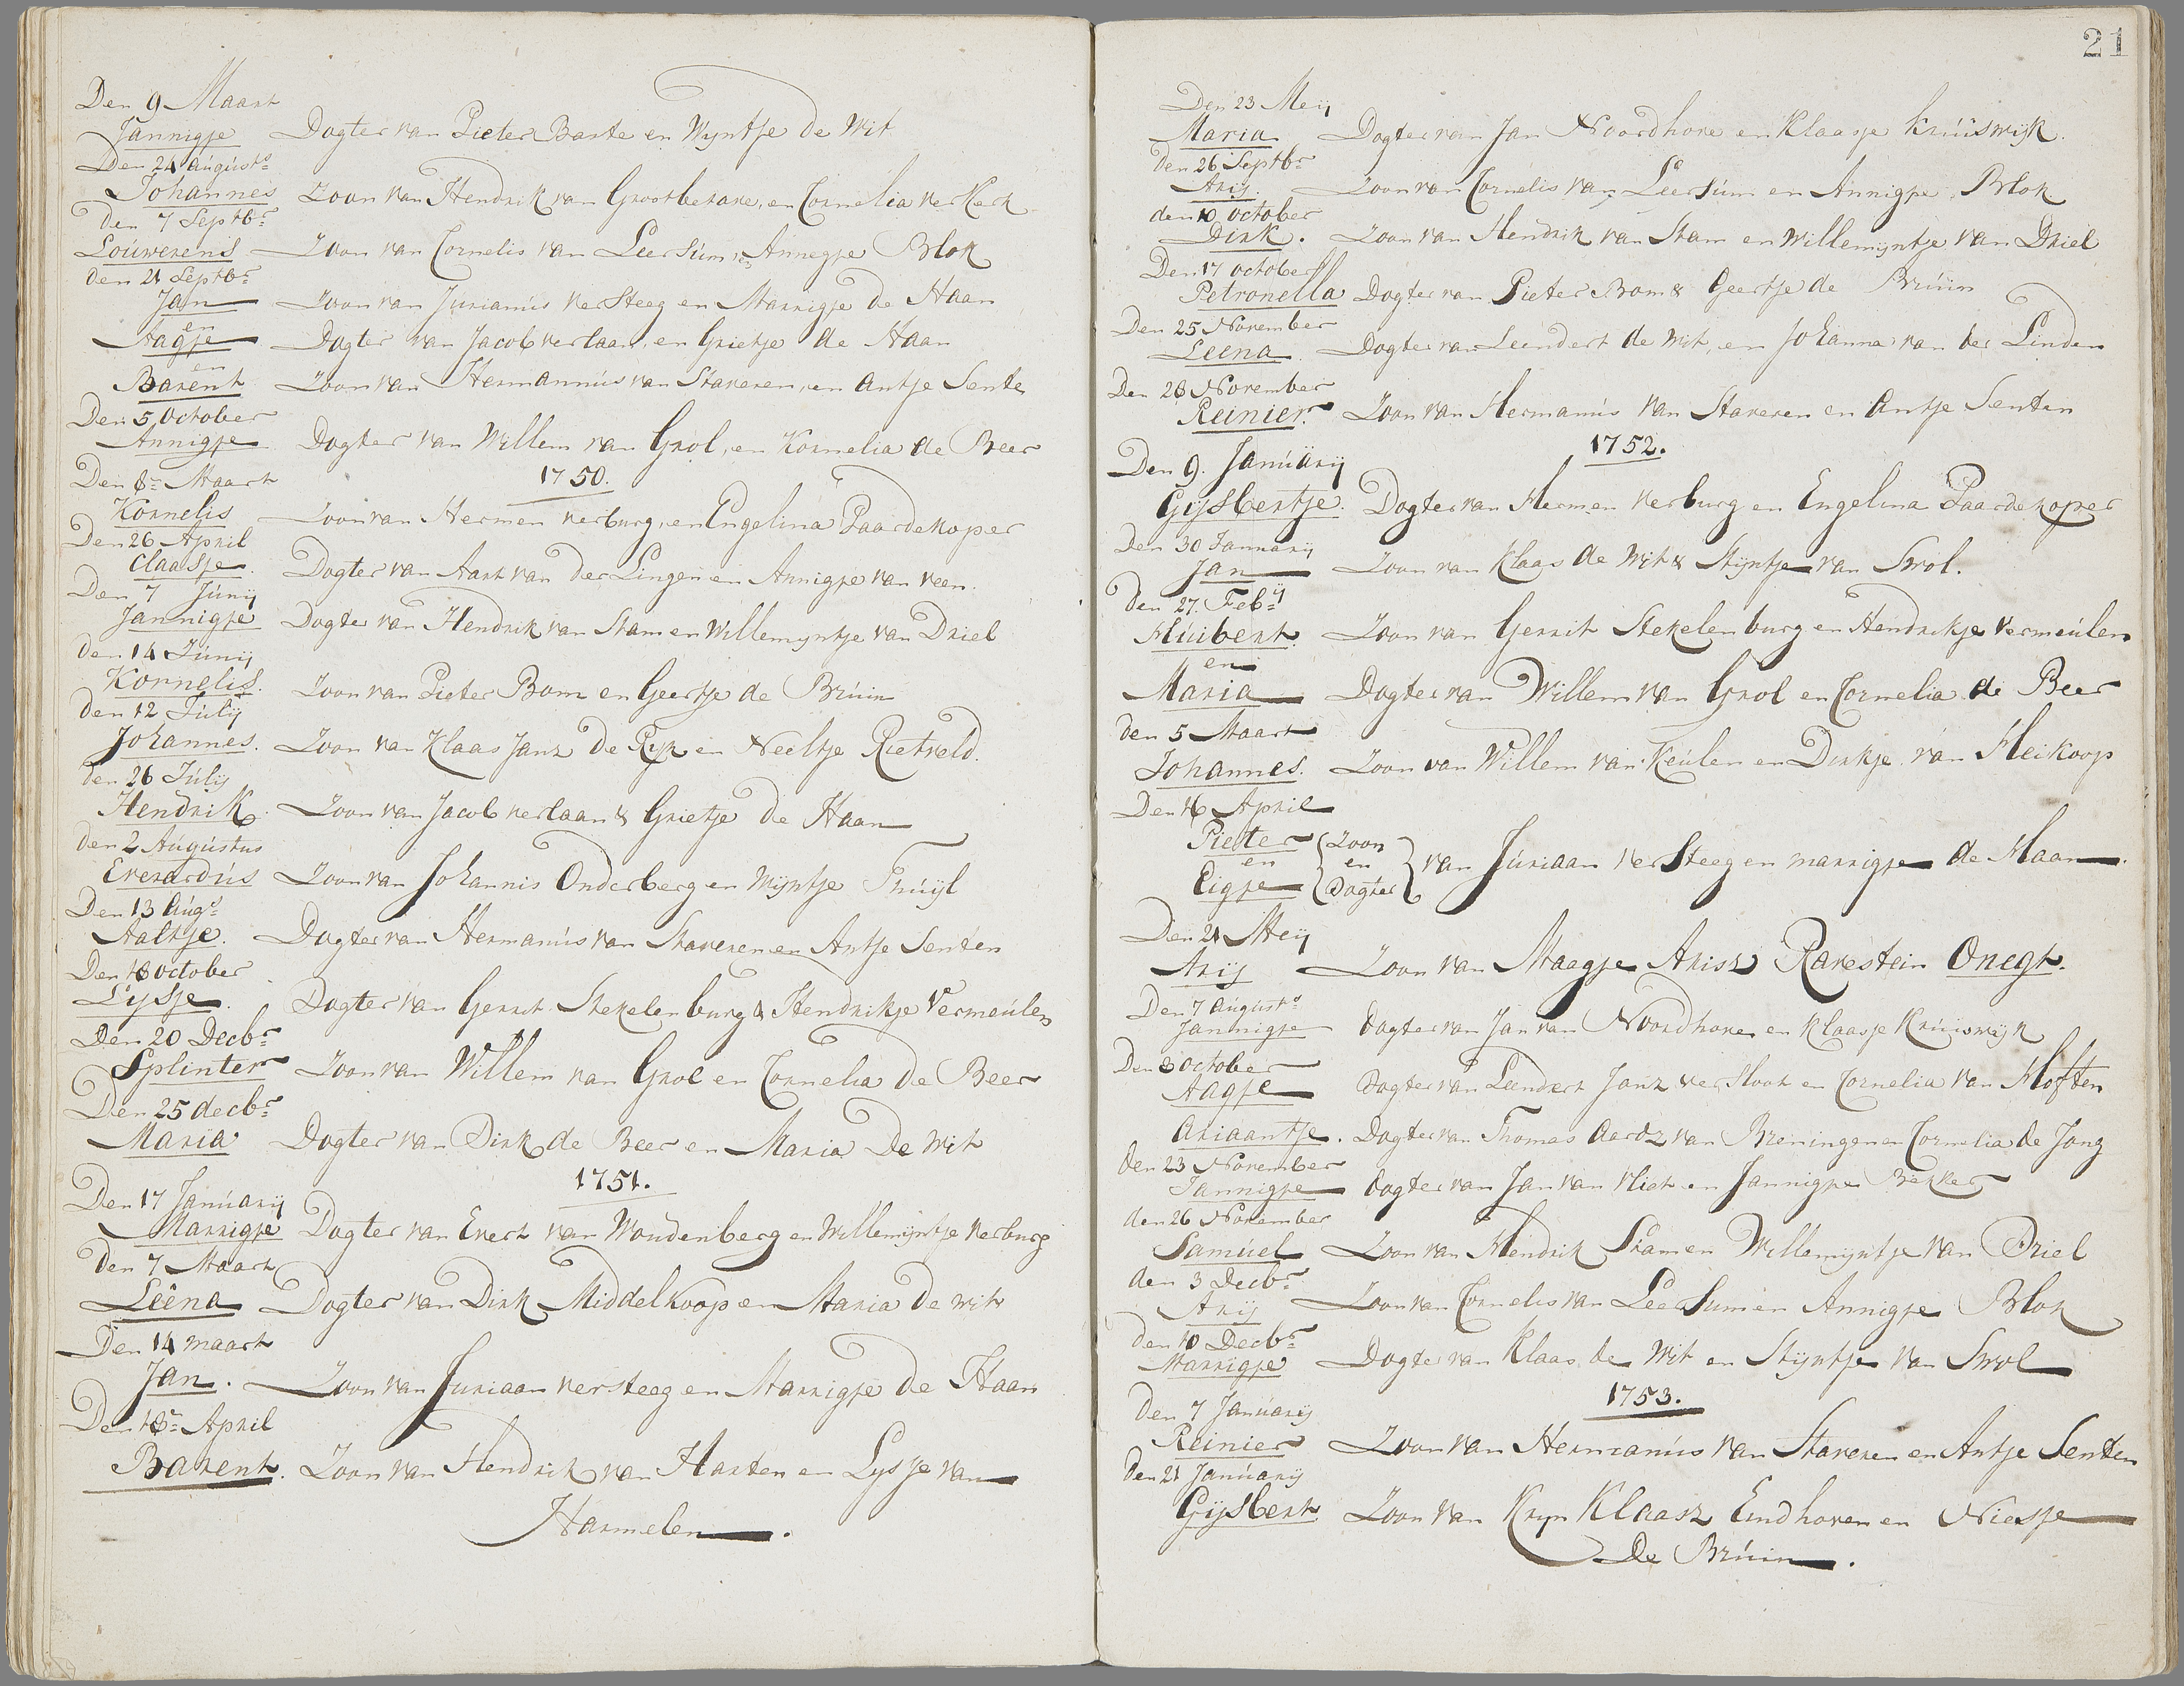 Den 9 Maart
Jannigje Dogter van Pieter Baste en Wyntje de Wit
Den 24 Augusts
Johannes Zoon van Hendrik van Grootveken, en Cornelia ver Kerk
Den 7 Septbr
Louwerens Zoon van Cornelis van Leersum, en Annegje Blok
den 21 Septbr
Jan Zoon van Jurianus ver Steeg en Marrigje de Haan
en
Aagje Dogter van Jacob verlaan, en Grietje de Haan
en
Barent Zoon van Hermannus van Staveren, en Antje Sente
Den 5 October
Annigje Dogter van Willem van Grol, en Kornelia de Beer
1750.
Den 8e Maart
Kornelis Zoon van Hermen verburg, en Engelina Paardekoper
Den 26 April
Claasje Dogter van Aart van der Lingen en Annigje van veen
Den 7 Junij
Jannigje Dogter van Hendrik van Stam en Willemyntje van Driel
den 14 Junij
Kornelis Zoon van Pieter Bom en Geertje de Bruin
den 12 Julij
Johannes. Zoon van Klaas Janz De Ryk en Neeltje Rietveld.
den 26 Julij
Hendrik Zoon van Jacob verlaan & Grietje de Haan
den 2 Augustus
Everardus Zoon van Johannis Onderberg en Wyntje Truijl
Den 13 Augs
Aaltje. Dogter van Hermanus van Staveren en Antje Senten
Den 18 October
Lysje. Dogter van Gerrit Stekelenburg & Hendrikje Vermeulen
Den 20 Decbr
Splinter Zoon van Willem van Grol en Cornelia de Beer
Den 25 decbr
Maria Dogter van Dirk de Beer en Maria De Wit
1751.
Den 17 Januarij
Marrigje Dogter van Evert van Woudenberg en Willemijntje verburg
Den 7 Maart
Leena Dogter van Dirk Middelkoop en Maria de wit
Den 14 maart
Jan. Zoon van Juriaan versteeg en Marrigje de Haan
Den 18e April
Barent. Zoon van Hendrik van Harten en Lysje van
Harmelen.
21
Den 23 Meij
Maria Dogter van Jan Noordhove en Klaasje Kruiswijk.
Den 26 Septbr
Arij. Zoon van Cornelis van Leersum en Annigje Blok
den 10 October
Dirk. Zoon van Hendrik van Stam en Willemijntje van Driel
Den 17 october
Petronella Dogter van Pieter Bom & Geertje de Bruin
Den 25 November
Leena Dogter van Leendert de Wit, en Johanna van der Linden
Den 28 November
Reinier. Zoon van Hermanus van Staveren en Antje Senten
1752.
Den 9. Januarij
Gijsbertje. Dogter van Hermen verburg en Engelina Paardekoper
Den 30 Januarij
Jan Zoon van Klaas de Wit & Stijntje van Swol.
Den 27. Febrij
Huibert Zoon van Gerrit Stekelenburg en Hendrikje Vermeulen
en
Maria Dogter van Willem van Grol en Cornelia de Beer
den 5 Maart
Johannes. Zoon van Willem van Keulen en Dirkje van Heikoop
Den 16 April
Pieter Zoon
en en van Juriaan ver Steeg en marrigje de Haan.
Eigje Dogter
Den 21 Meij
Arij Zoon van Maagje Arisz Ravestein Onegt.
Den 7 Augusts
Jannigje dogter van Jan van Noordhoven en Klaasje Kruiswijk
Den 8 October
Aagje Dogter van Leendert Janz ver Hoot en Cornelia van Hoften
Ariaantje. Dogter van Thomas Aardz van Breningen en Cornelia de Jong
den 23 November
Jannigje dogter van Jan van Vliet en Jannigje Bekker
den 26 November
Samuel Zoon van Hendrik Stam en Willemijntje van Driel
den 3 Decbr
Arij Zoon van Cornelis van Leersum en Annigje Blok
Den 10 Decbr
Marrigje Dogter van Klaas de Wit en Stijntje van Swol
1753.
Den 7 Januarij
Reinier Zoon van Hermanus van Staveren en Antje Senten
Den 21 Januarij
Gijsbert Zoon van Kryn Klaasz Eindhoven en Niesje
De Bruin.